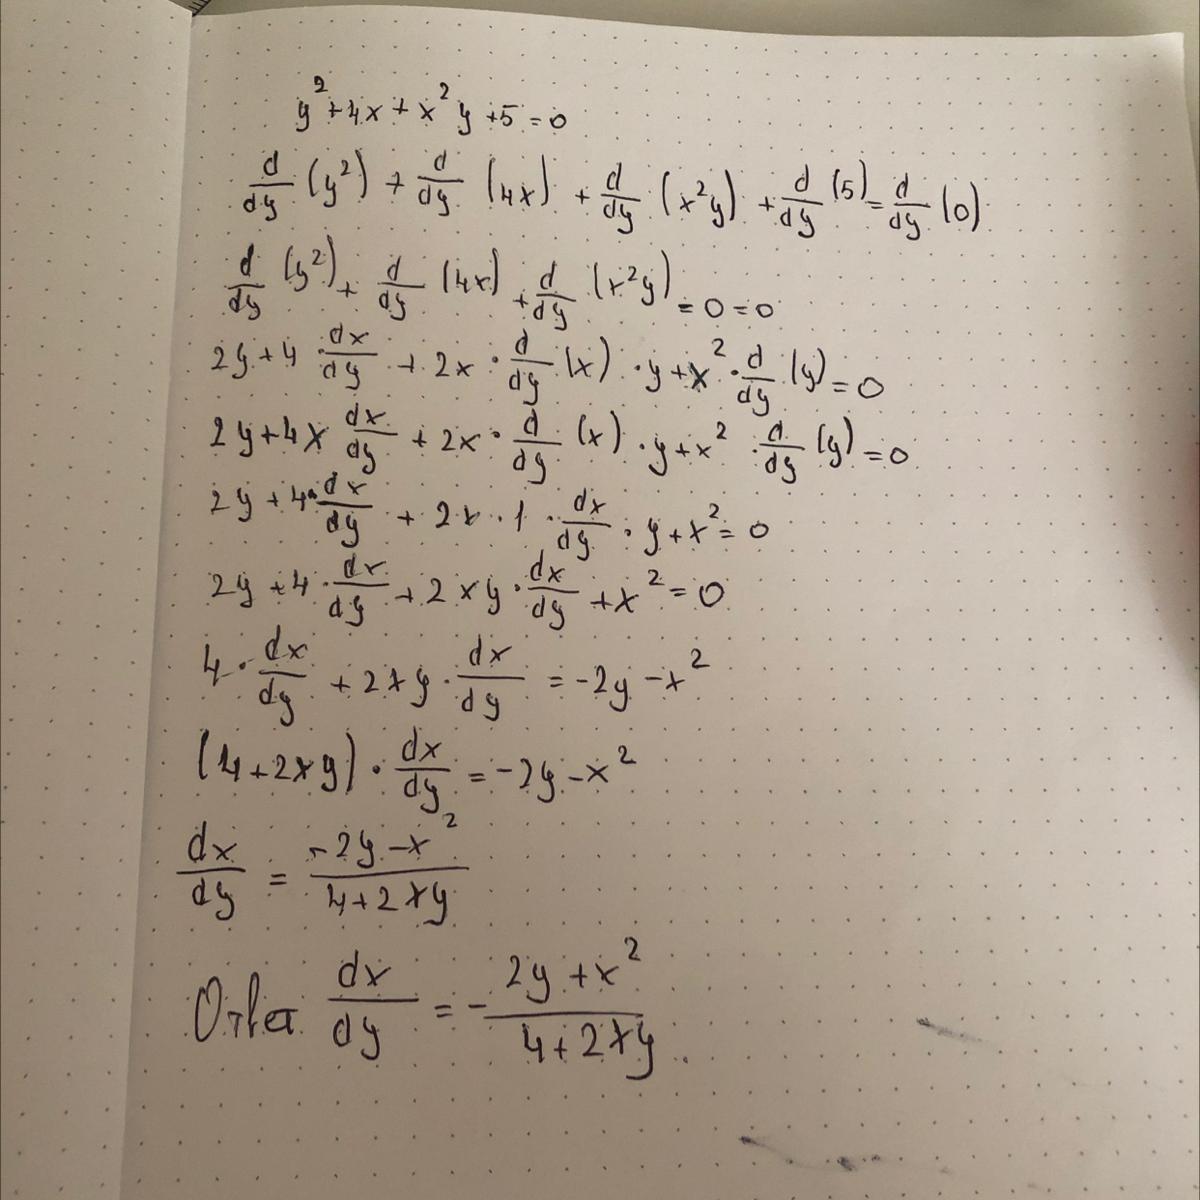 y²+4x+x²y+5=0
d/dy (y²) + d/dy (4x) + d/dy (x²y) + d/dy (5) = d/dy (0)
d/dy (y²) + d/dy (4x) + d/dy (x²y) = 0 = 0
2y+4·dx/dy + 2x·d/dy (x)·y+x²·d/dy (y) = 0
2y+4x dx/dy + 2x·d/dy (x)·y+x²·d/dy (y) = 0
2y+4·dx/dy + 2x·1·dx/dy·y+x² = 0
2y+4·dx/dy + 2xy·dx/dy + x² = 0
4·dx/dy + 2xy·dx/dy = -2y-x²
(4+2xy)·dx/dy = -2y-x²
dx/dy = (-2y-x²)/(4+2xy)
Ответ dx/dy = - (2y+x²)/(4+2xy).